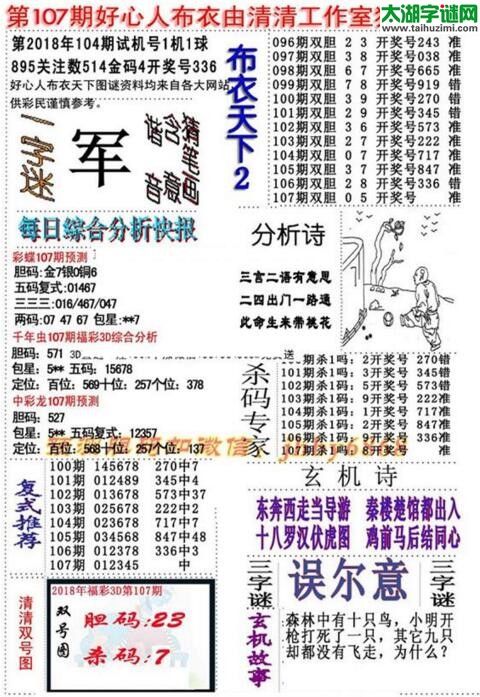 太湖字谜网
www.taihuzimi.com
第107期好心人布衣由清清工作室
第2018年104期试机号1机1球
895关注数514金码4开奖号336
好心人布衣天下图谜资料均来自各大网站,
供彩民谨慎参考。
一字谜
军
猜笔画
含意
谐音
布衣天下2
096期双胆 2 3 开奖号243 准
097期双胆 3 8 开奖号038 准
098期双胆 0 6 开奖号665 准
099期双胆 7 8 开奖号919 错
100期双胆 1 9 开奖号270 错
101期双胆 3 9 开奖号345 准
102期双胆 3 6 开奖号573 准
103期双胆 2 7 开奖号222 准
104期双胆 0 7 开奖号717 准
105期双胆 3 7 开奖号847 准
106期双胆 2 8 开奖号336 错
107期双胆 0 5 开奖号 准
每日综合分析快报
彩蝶107期预测
胆码:金7银0铜6
五码复式:01467
三三三:016/467/047
两码:07 47 67 包星:**7
千年虫107期福彩3D综合分析
胆码:571
包星:5** 五码:15678
定位:百位:569十位:257个位:378
中彩龙107期预测
胆码:527
包星:5** 五码复式:12357
定位:百位:568十位:257个位:137
分析诗
三言二语有意思
二四出门一路通
此命生来带桃花
杀码专家
100期杀1码:2开奖号 270错
101期杀1码:3开奖号 345错
玄机诗
东奔西走当导游 秦楼楚馆都出入
十八罗汉伏虎图 鸡前马后结同心
复式推荐
100期 145678 270中7
101期 012489 345中4
102期 013678 573中37
103期 023678 222中2
104期 023678 717中7
105期 034568 847中48
106期 012378 336中3
107期 012345 中
清清双号图
2018年福彩3D第107期
双号图
胆码:23
杀码:7
三字谜
误尔意
三字谜
玄机故事
森林中有十只鸟,小明开
枪打死了一只,其它九只
却都没有飞走,为什么?